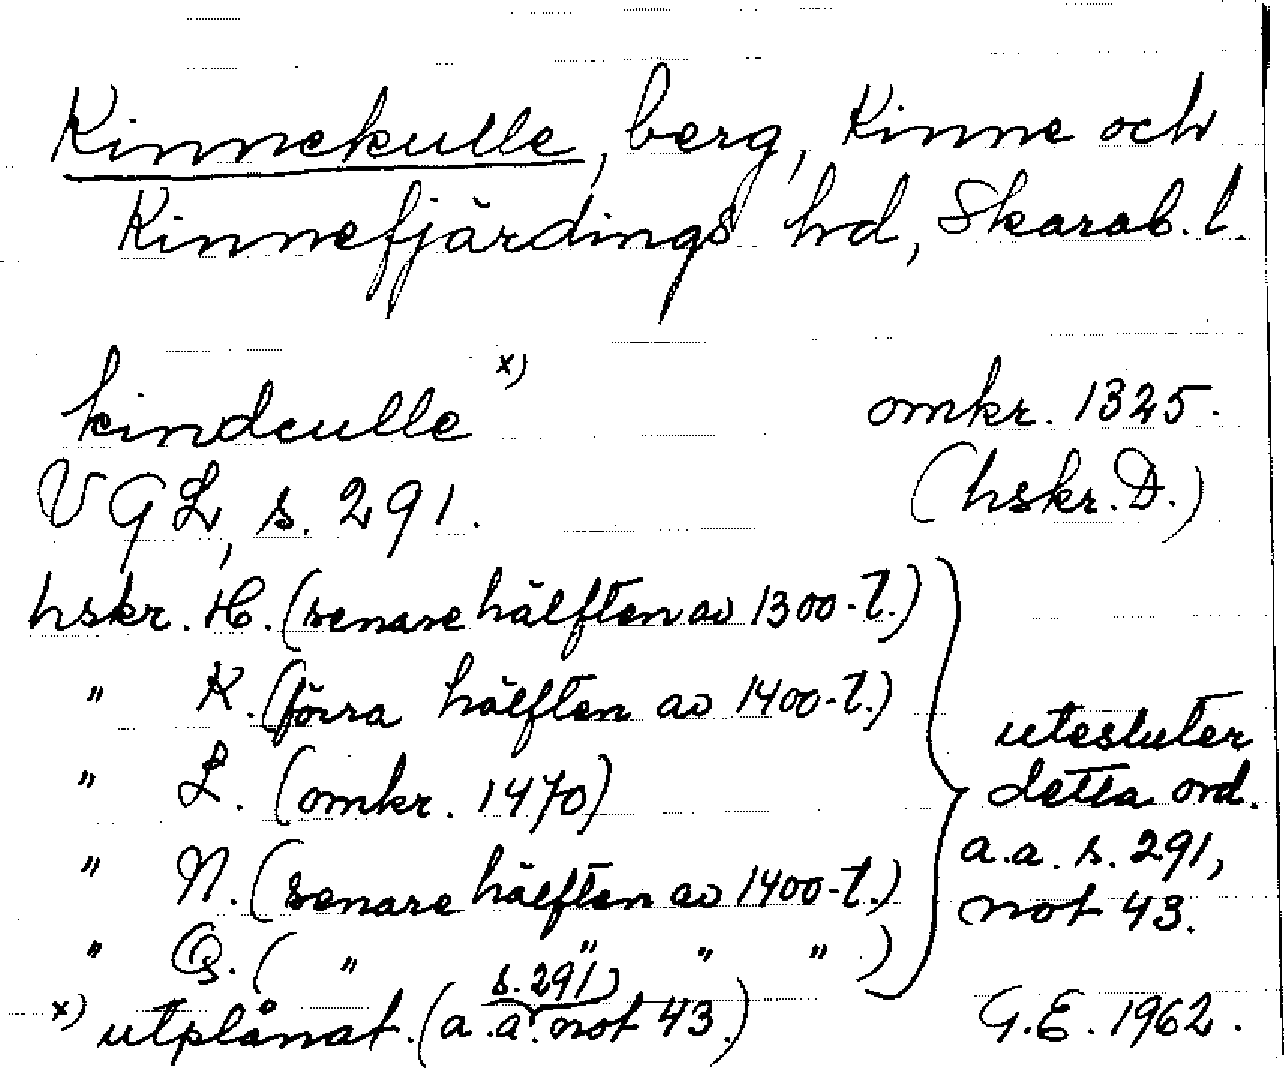 Kinnekulle, berg, Kinne och
Kinnefjärdings hd, Skarab. l.
kindculle x) omkr. 1325.
VGL, s. 291. (hskr. D.)
hskr. H. (senare hälften av 1300-t.)
" K. (förra hälften av 1400-t.)
" L. (omkr. 1470)
" N. (senare hälften av 1400-t.)
" Q. ( " " " " )
utesluter
detta ord.
a.a. s. 291,
not 43.
x) utplånat. (a.a. s. 291, not 43.)
G.E. 1962.